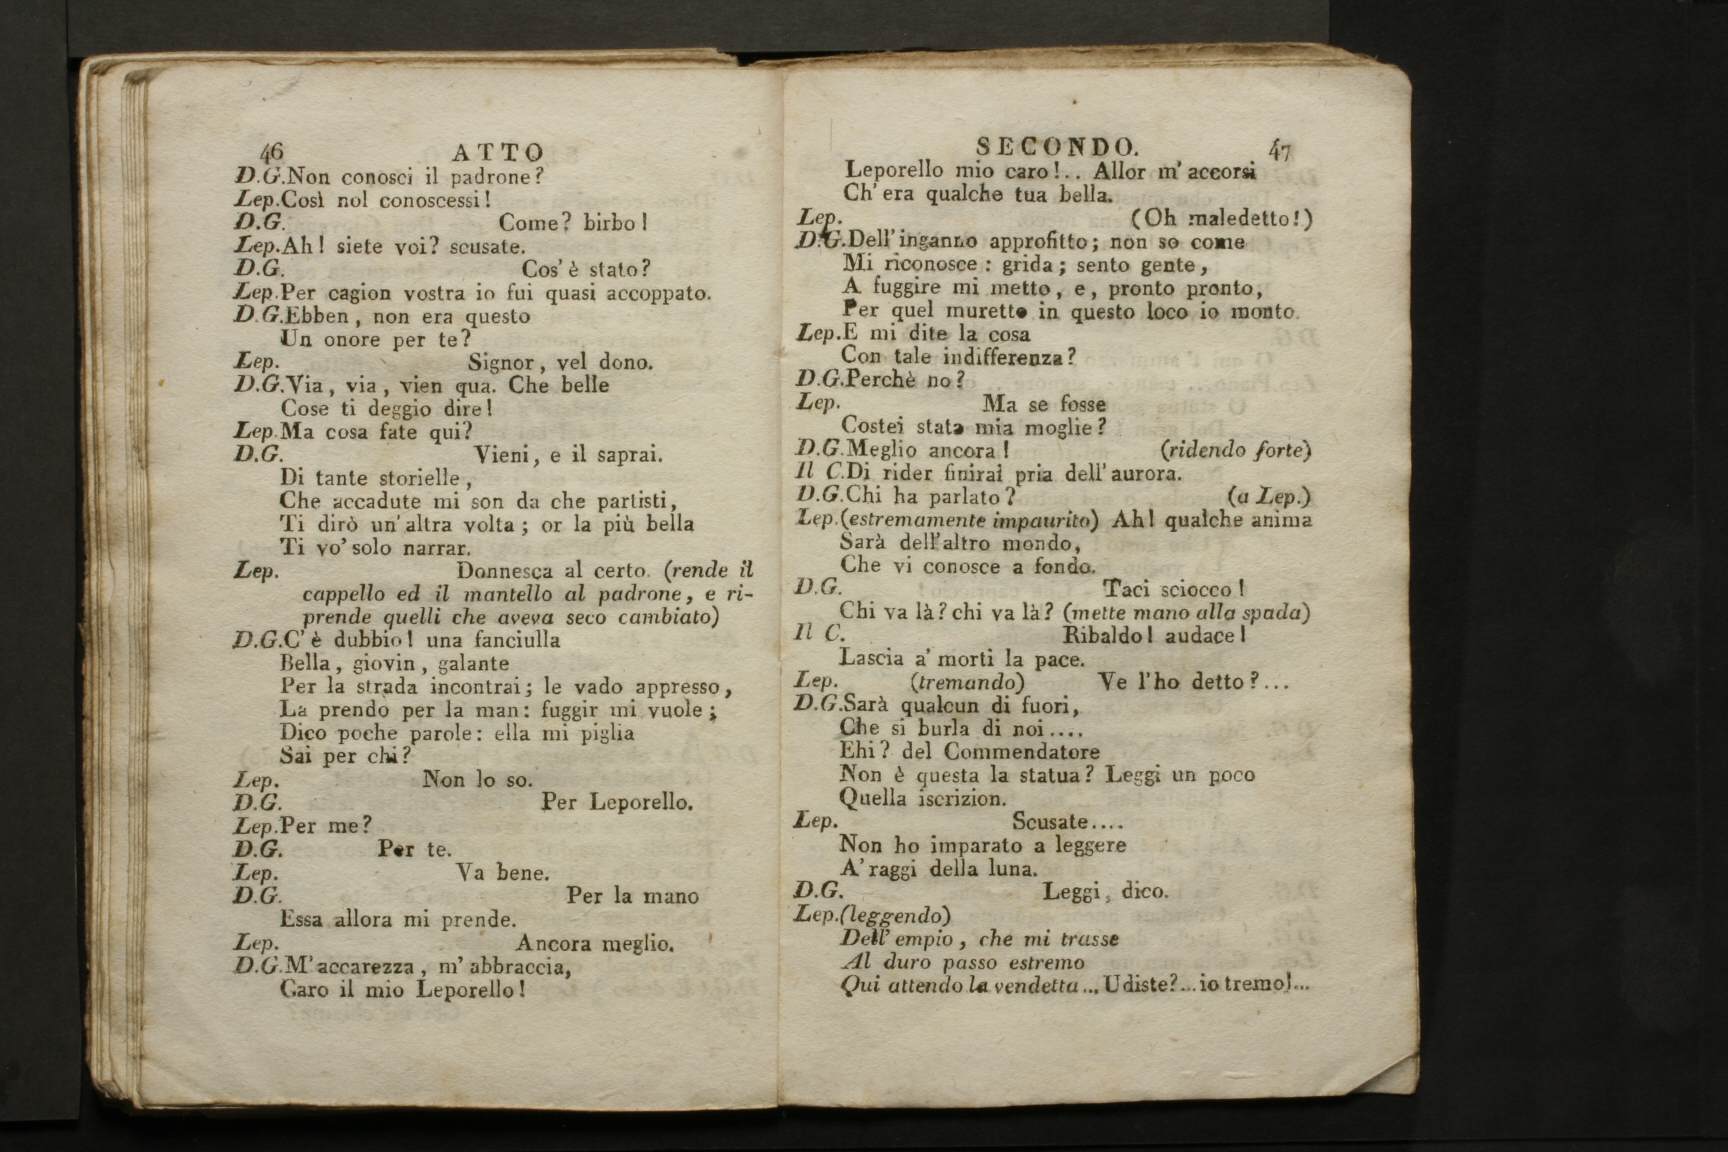 46 ATTO
D.G.Non conosci il padrone?
Lep.Così nol conoscessi!
D.G. Come? birbo!
Lep.Ah! siete voi? scusate.
D.G. Cos' è stato?
Lep.Per cagion vostra io fui quasi accoppato.
D.G.Ebben, non era questo
Un onore per te?
Lep. Signor, vel dono.
D.G.Via, via, vien qua. Che belle
Cose ti deggio dire!
Lep.Ma cosa fate qui?
D.G. Vieni, e il saprai.
Di tante storielle,
Che accadute mi son da che partisti,
Ti dirò un' altra volta; or la più bella
Ti vo' solo narrar.
Lep. Donnesca al certo. (rende il
cappello ed il mantello al padrone, e ri-
prende quelli che aveva seco cambiato)
D.G.C' è dubbio! una fanciulla
Bella, giovin, galante
Per la strada incontrai; le vado appresso,
La prendo per la man: fuggir mi vuole;
Dico poche parole: ella mi piglia
Sai per chi?
Lep. Non lo so.
D.G. Per Leporello.
Lep.Per me?
D.G. Per te.
Lep. Va bene.
D.G. Per la mano
Essa allora mi prende.
Lep. Ancora meglio.
D.G.M' accarezza, m' abbraccia,
Caro il mio Leporello!
SECONDO. 47
Leporello mio caro!.. Allor m' accorsi
Ch' era qualche tua bella.
Lep. (Oh maledetto!)
D.G.Dell' inganno approfitto; non so come
Mi riconosce: grida; sento gente,
A fuggire mi metto, e, pronto pronto,
Per quel muretto in questo loco io monto.
Lep.E mi dite la cosa
Con tale indifferenza?
D.G.Perchè no?
Lep. Ma se fosse
Costei stata mia moglie?
D.G.Meglio ancora! (ridendo forte)
Il C.Di rider finirai pria dell' aurora.
D.G.Chi ha parlato? (a Lep.)
Lep.(estremamente impaurito) Ah! qualche anima
Sarà dell'altro mondo,
Che vi conosce a fondo.
D.G. Taci sciocco!
Chi va là? chi va là? (mette mano alla spada)
Il C. Ribaldo! audace!
Lascia a' morti la pace.
Lep. (tremando) Ve l'ho detto?...
D.G.Sarà qualcun di fuori,
Che si burla di noi....
Ehi? del Commendatore
Non è questa la statua? Leggi un poco
Quella iscrizion.
Lep. Scusate....
Non ho imparato a leggere
A' raggi della luna.
D.G. Leggi, dico.
Lep.(leggendo)
Dell' empio, che mi trasse
Al duro passo estremo
Qui attendo la vendetta... Udiste?...io tremo!...